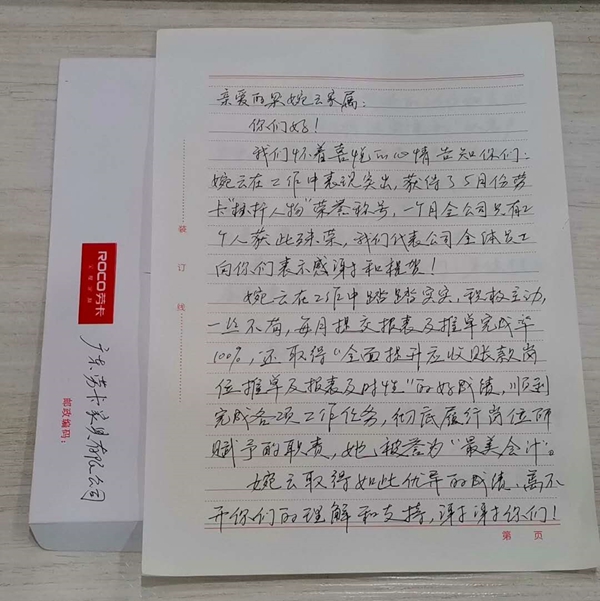 亲爱的梁婉云家属：
你们好！
我们怀着喜悦的心情告知你们：
婉云在工作中表现突出，获得了5月份劳
卡“标杆人物”荣誉称号，一个月全公司只有2
个人获此殊荣，我们代表公司全体员工
向你们表示感谢和祝贺！
婉云在工作中踏踏实实，积极主动，
一丝不苟，每月提交报表及推单完成率
100%，还取得“全面提升应收账款岗
位推单及报表及时性”的好成绩，顺利
完成各项工作任务，彻底履行岗位所
赋予的职责，她被誉为“最美会计”。
婉云取得如此优异的成绩，离不
开你们的理解和支持，谢谢你们！
第 页
装 订 线
ROCO劳卡
全屋定制
广东劳卡家具有限公司
邮政编码：